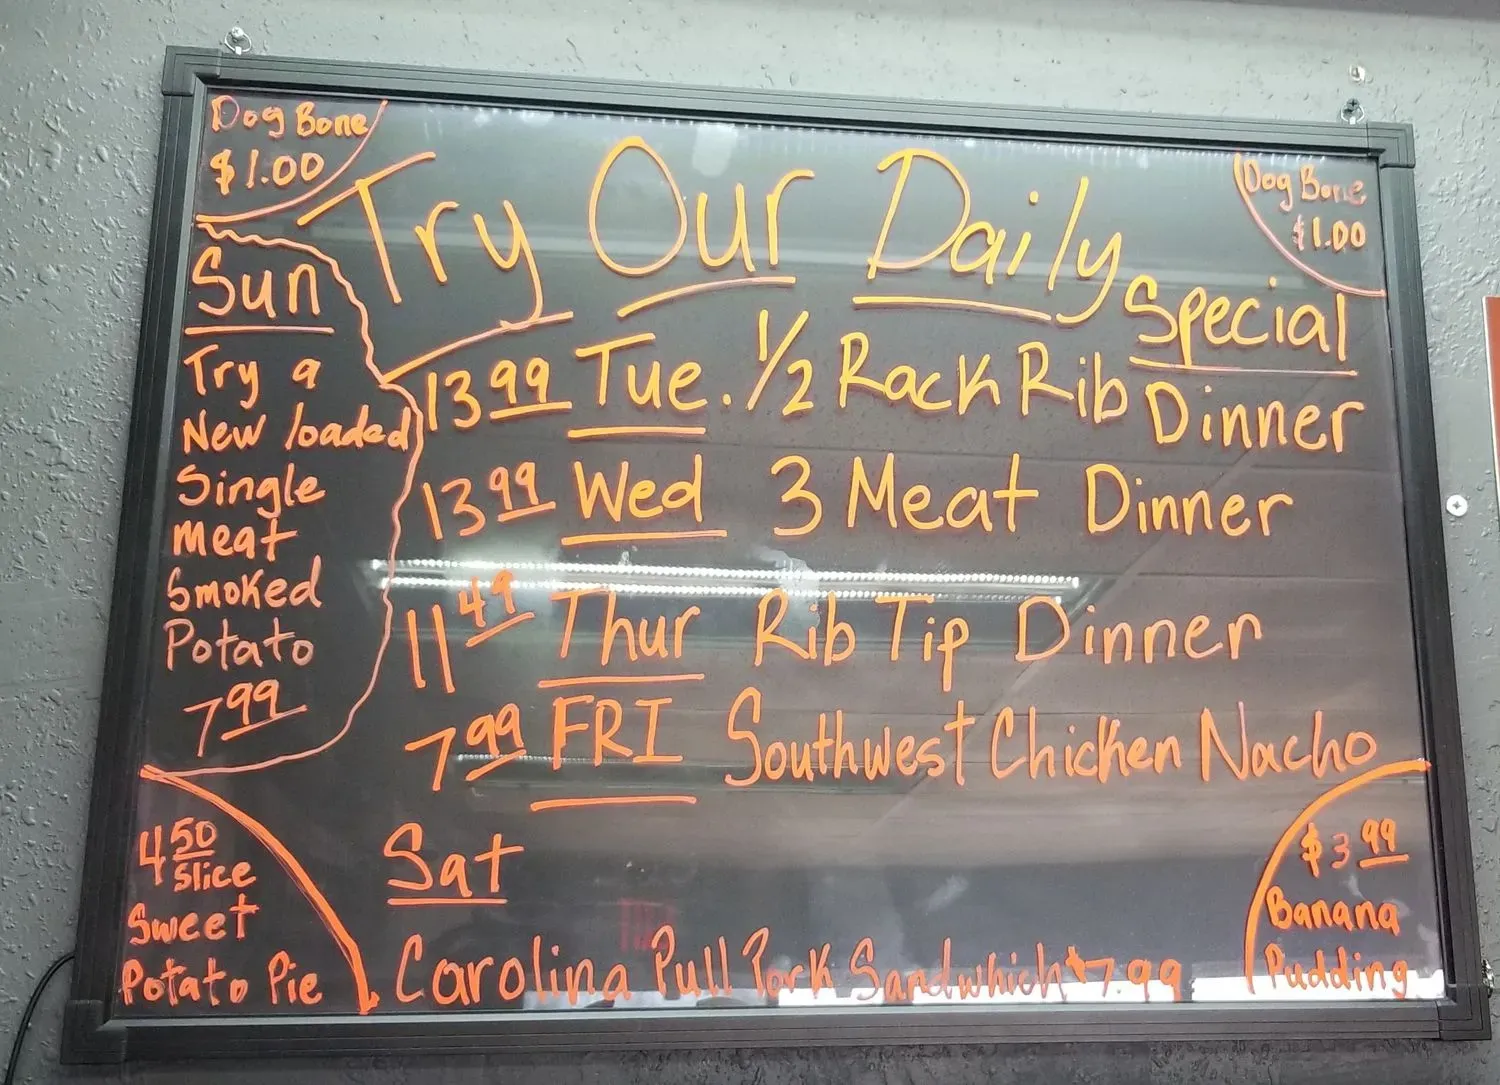 Dog Bone
$1.00
Try Our Daily
Special
Dog Bone
$1.00
Sun
Try a
New loaded
Single
meat
Smoked
Potato
7.99
13.99 Tue. 1/2 Rack Rib Dinner
13.99 Wed 3 Meat Dinner
11.49 Thur Rib Tip Dinner
7.99 FRI Southwest Chicken Nacho
Sat
Carolina Pull Pork Sandwhich $7.99
4.50
Slice
Sweet
Potato Pie
$3.99
Banana
Pudding